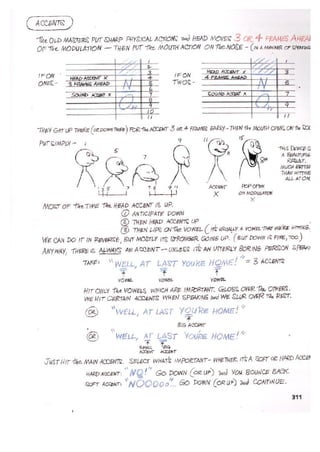 ACCENTS
The OLD MASTERS PUT SHARP PHYSICAL ACTIONS and HEAD MOVES 3 OR 4 FRAMES AHEAD
OF The MODULATION — THEN PUT The MOUTH ACTION ON The NOSE - (IN A MANNER OF SPEAKING
IF ON ONES -
HEAD ACCENT X
3 FRAMES AHEAD
SOUND ACCENT X
1
2
3
4
5
6
7
8
9
10
11
IF ON TWOS -
HEAD ACCENT X
4 FRAMES AHEAD
SOUND ACCENT X
1
3
5
7
9
11
THEY GET UP THERE (OR DOWN THERE) FOR The ACCENT 3 OR 4 FRAMES EARLY - THEN The MOUTH OPENS, ON The
PUT SIMPLY -
1
5
7
9
11
15
ACCENT
X
POP OPEN
ON MODULATION
THIS DEVICE IS
A BEAUTIFUL
RESULT.
MUCH BETTER
THAN HITTING
ALL AT ONE
MOST OF The TIME The HEAD ACCENT IS UP.
① ANTICIPATE DOWN
② THEN HEAD ACCENTS UP
③ THEN LIPS ON The VOWEL (IT'S USUALLY A VOWEL THAT WE'RE HITTING.
WE CAN DO IT IN REVERSE, BUT MOSTLY IT'S STRONGER GOING UP. (BUT DOWN IS FINE, TOO)
ANYWAY, THERE IS ALWAYS AN ACCENT - UNLESS IT'S AN UTTERLY BORING PERSON SPEAKI
TAKE: "WELL, AT LAST YOU'RE HOME!" = 3 ACCENTS
VOWEL VOWEL VOWEL
HIT ONLY The VOWELS WHICH ARE IMPORTANT. GLOSS OVER The OTHERS.
WE HIT CERTAIN ACCENTS WHEN SPEAKING and WE SLUR OVER The REST.
OR "WELL, AT LAST YOU'RE HOME!"
BIG ACCENT
OR "WELL, AT LAST YOU'RE HOME!"
SMALL ACCENT BIG ACCENT
JUST HIT The MAIN ACCENTS. SELECT WHAT'S IMPORTANT - WHETHER IT'S A SOFT OR HARD ACCEN
HARD ACCENT: "NO!" GO DOWN (OR UP) and YOU BOUNCE BACK.
SOFT ACCENT: "NOOOoo".. GO DOWN (OR UP) and CONTINUE.
311